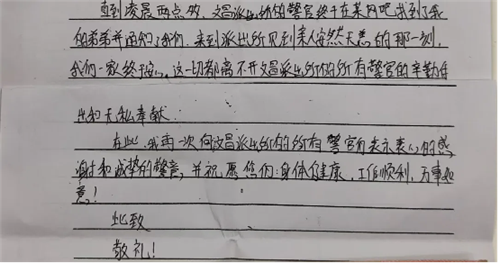 直到凌晨两点钟，文昌派出所的警官终于在某网吧找到了我
的弟弟并通知了我们，来到派出所见到亲人安然无恙的那一刻，
我们一家终于安心，这一切都离不开文昌派出所的所有警官的辛勤付
出和无私奉献．
在此，我再一次向文昌派出所的所有警官们表示衷心的感
谢和诚挚的敬意，并祝愿您们：身体健康，工作顺利，万事如
意！
此致
敬礼！